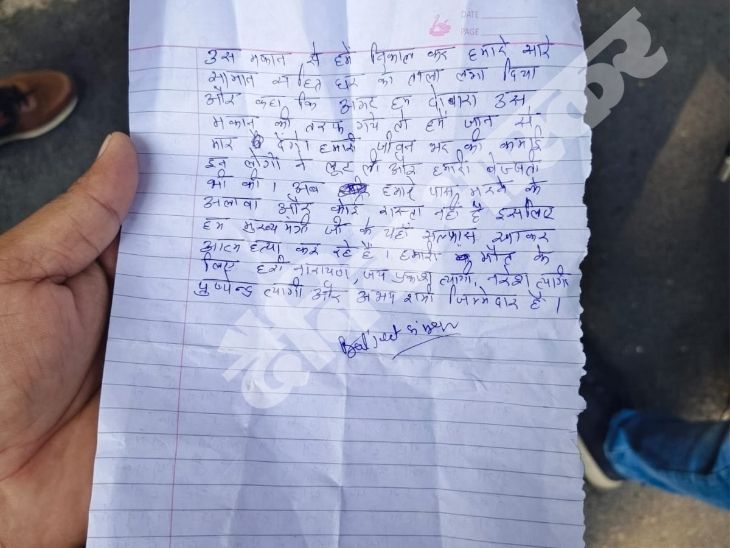 DATE
PAGE
उस मकान से हमें निकाल कर हमारे सारे
सामान सहित घर को ताला लगा दिया
और कहा कि अगर हम दोबारा उस
मकान की तरफ गये तो हमें जान से
मार देंगे। हमारी जीवन भर की कमाई
इन लोगों ने लूट ली और हमारी बेज्जती
भी की। अब हमारे पास मरने के
अलावा और कोई रास्ता नहीं है इसलिए
हम मुख्यमंत्री जी के यहाँ सल्फास खाकर
आत्म हत्या कर रहे है। हमारी मौत के
लिए हरी नारायण, जय प्रकाश त्यागी, नरेश त्यागी
पुष्पेन्द्र त्यागी और अभय शर्मा जिम्मेवार है।
Baljeet singh
दैनिक भास्कर